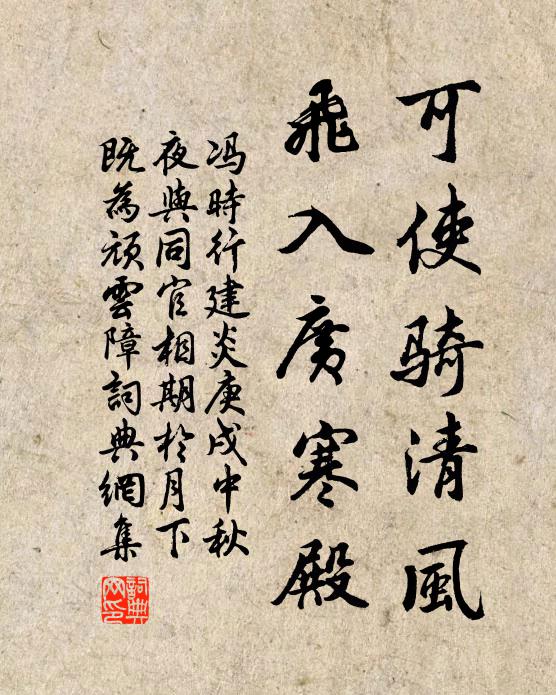 可使骑清風
飛入广寒殿
冯時行建炎庚戌中秋
夜與同官相期於月下
既為頑雲障詞典網集
詞典網印